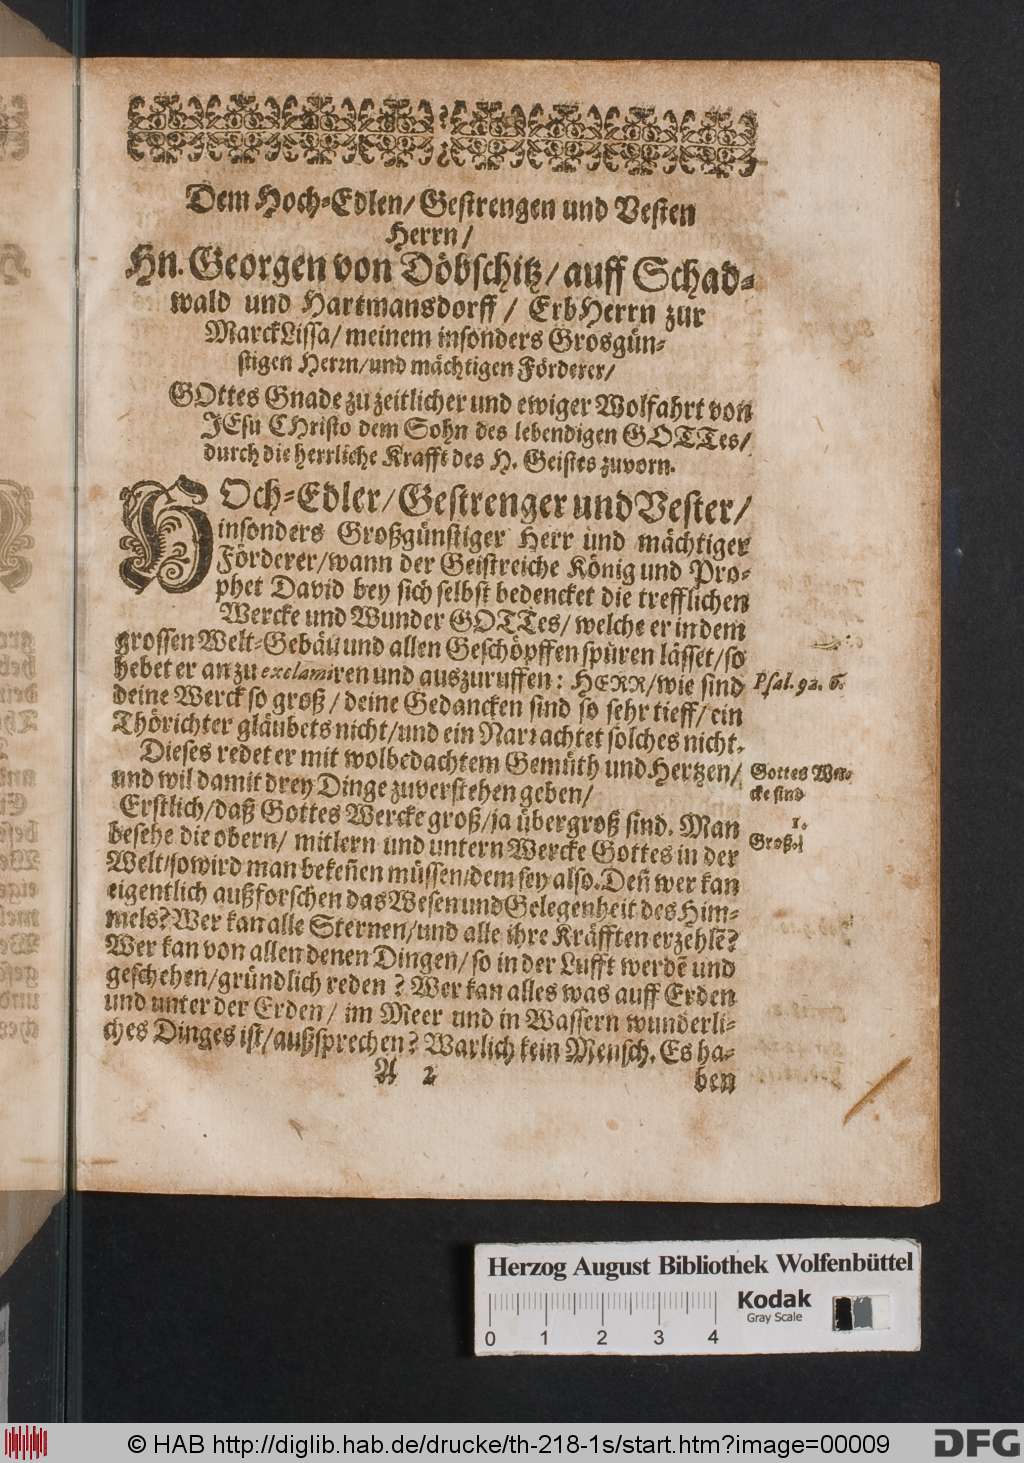 Dem Hoch-Edlen/ Gestrengen und Vesten
Herrn/
Hn. Georgen von Döbschitz/ auff Schad-
wald und Hartmansdorff/ ErbHerrn zur
MarckLissa/ meinem insonders Grosgün-
stigen Herrn/ und mächtigen Förderer/
GOttes Gnade zu zeitlicher und ewiger Wolfahrt von
JEsu CHristo dem Sohn des lebendigen GOTTes/
durch die herrliche Krafft des H. Geistes zuvorn.
HOch-Edler/ Gestrenger und Vester/
insonders Großgünstiger Herr und mächtiger
Förderer/ wann der Geistreiche König und Pro-
phet David bey sich selbst bedencket die trefflichen
Wercke und Wunder GOTTes/ welche er in dem
grossen Welt-Gebäu und allen Geschöpffen spüren lässet/ so
hebet er an zu exclamiren und auszuruffen: HERR/ wie sind
deine Werck so groß/ deine Gedancken sind so sehr tieff/ ein
Thörichter gläubets nicht/ und ein Narr achtet solches nicht.
Psal. 92. 6.
Dieses redet er mit wolbedachtem Gemüth und Hertzen/
und wil damit drey Dinge zuverstehen geben/
Gottes Wer-
cke sind
Erstlich/ daß Gottes Wercke groß/ ja übergroß sind. Man
besehe die obern/ mitlern und untern Wercke Gottes in der
1.
Groß.
Welt/ so wird man bekeñen müssen/ dem sey also. Deñ wer kan
eigentlich außforschen das Wesen und Gelegenheit des Him-
mels? Wer kan alle Sternen/ und alle ihre Kräfften erzehlẽ?
Wer kan von allen denen Dingen/ so in der Lufft werdẽ und
geschehen/ gründlich reden? Wer kan alles was auff Erden
und unter der Erden/ im Meer und in Wassern wunderli-
ches Dinges ist/ außsprechen? Warlich kein Mensch. Es ha-
A 2
ben
Herzog August Bibliothek Wolfenbüttel
Kodak
Gray Scale
0 1 2 3 4
© HAB http://diglib.hab.de/drucke/th-218-1s/start.htm?image=00009
DFG